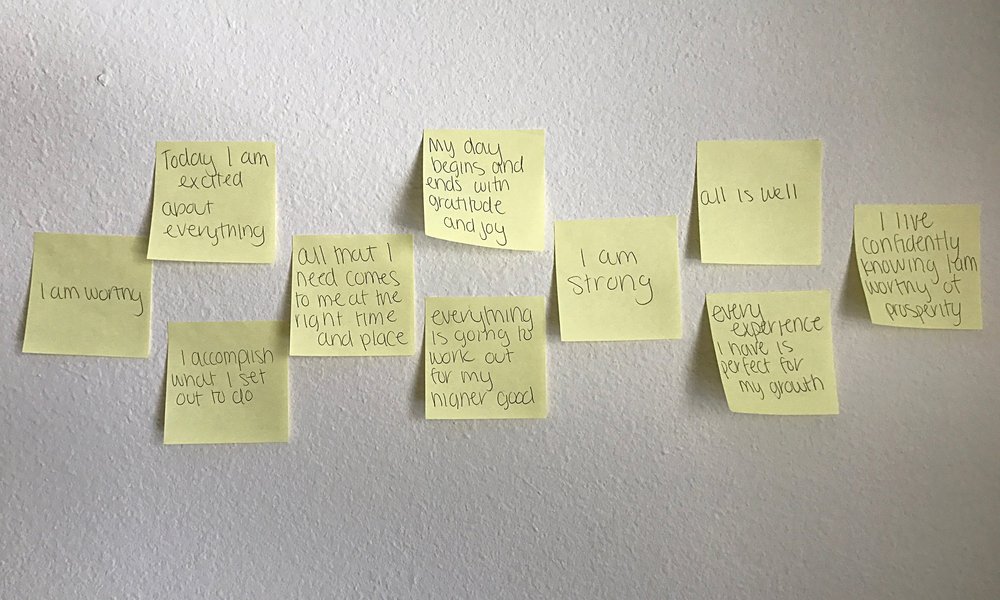 I am worthy
Today I am
excited
about
everything
I accomplish
what I set
out to do
all that I
need comes
to me at the
right time
and place
My day
begins and
ends with
gratitude
and joy
everything
is going to
work out
for my
higher good
I am
strong
all is well
every
experience
I have is
perfect for
my growth
I live
confidently
knowing I am
worthy of
prosperity